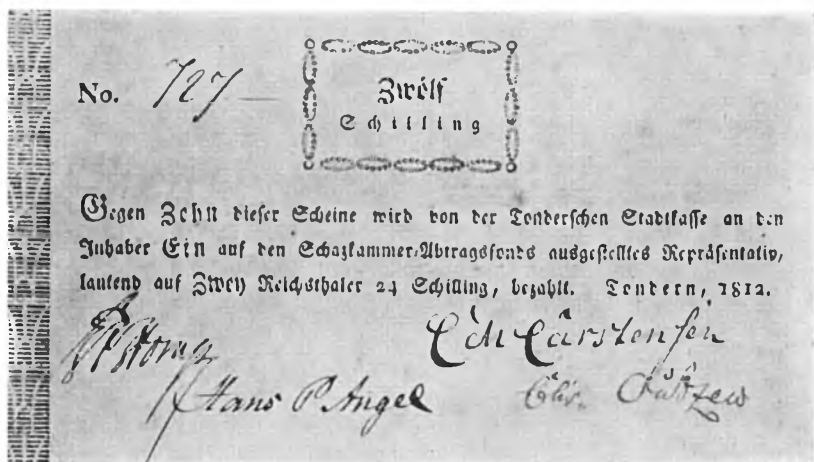 No. 727
Zwölf
Schilling
Gegen Zehn dieser Scheine wird von der Tonderschen Stadtkasse an den
Inhaber Ein auf den Schazkammer-Abtragsfonds ausgestelltes Repräsentativ,
lautend auf Zwey Reichsthaler 24 Schilling, bezahlt. Tondern, 1812.
Carstensen
Hans P. Angel
Chr.